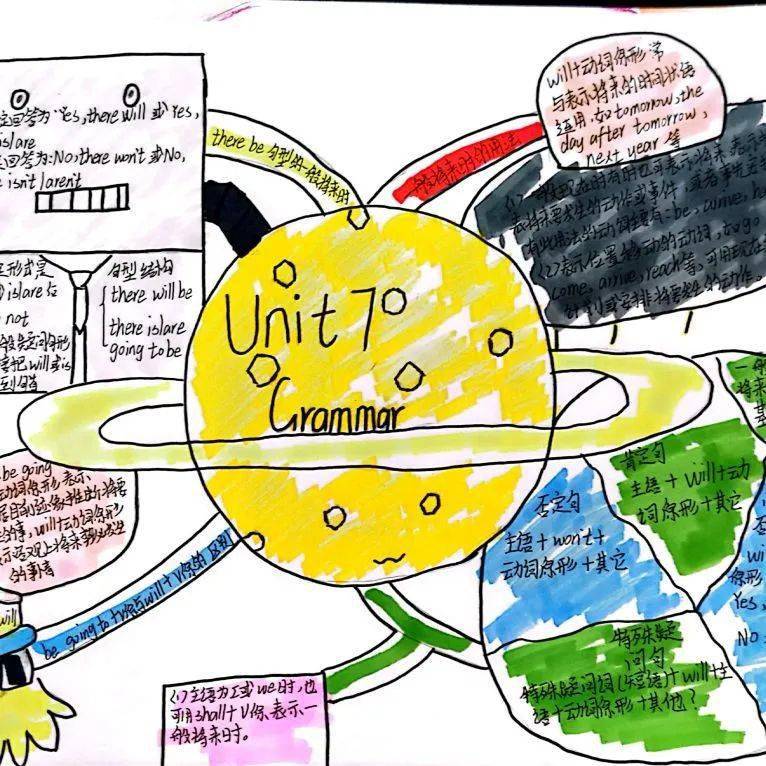 定回答为 "Yes, there will 或 Yes,
is/are
定回答为: No, there won't 或 No,
e isn't/aren't
there be 句型的一般将来时
一般将来时的用法
will+动词原形常
与表示将来的时间状语
连用,如 tomorrow, the
day after tomorrow,
next year 等
有此用法的动词主要有: be, come,
(2)表示位置移动的动词,如 go
come, arrive, reach 等,可用现在
计划或安排将要发生的动作。
定形式是
is/are 后
not
一般疑问句形
要把 will 或 is
到句首
句型结构
there will be
there is/are
going to be
Unit 7
Grammar
be going
动词原形表示
will+动词原形
示客观上将来势必发生
的事情
will
be going to+V原与will+V原的区别
(1)主语为I或we时,也
可用shall+V原表示一
般将来时。
肯定句
主语+will+动
词原形+其它
否定句
主语+won't+
动词原形+其它
特殊疑
问句
特殊疑问词(短语)+will+主
语+动词原形+其他?
一般
将来
其
wi
原形
Yes,
No,